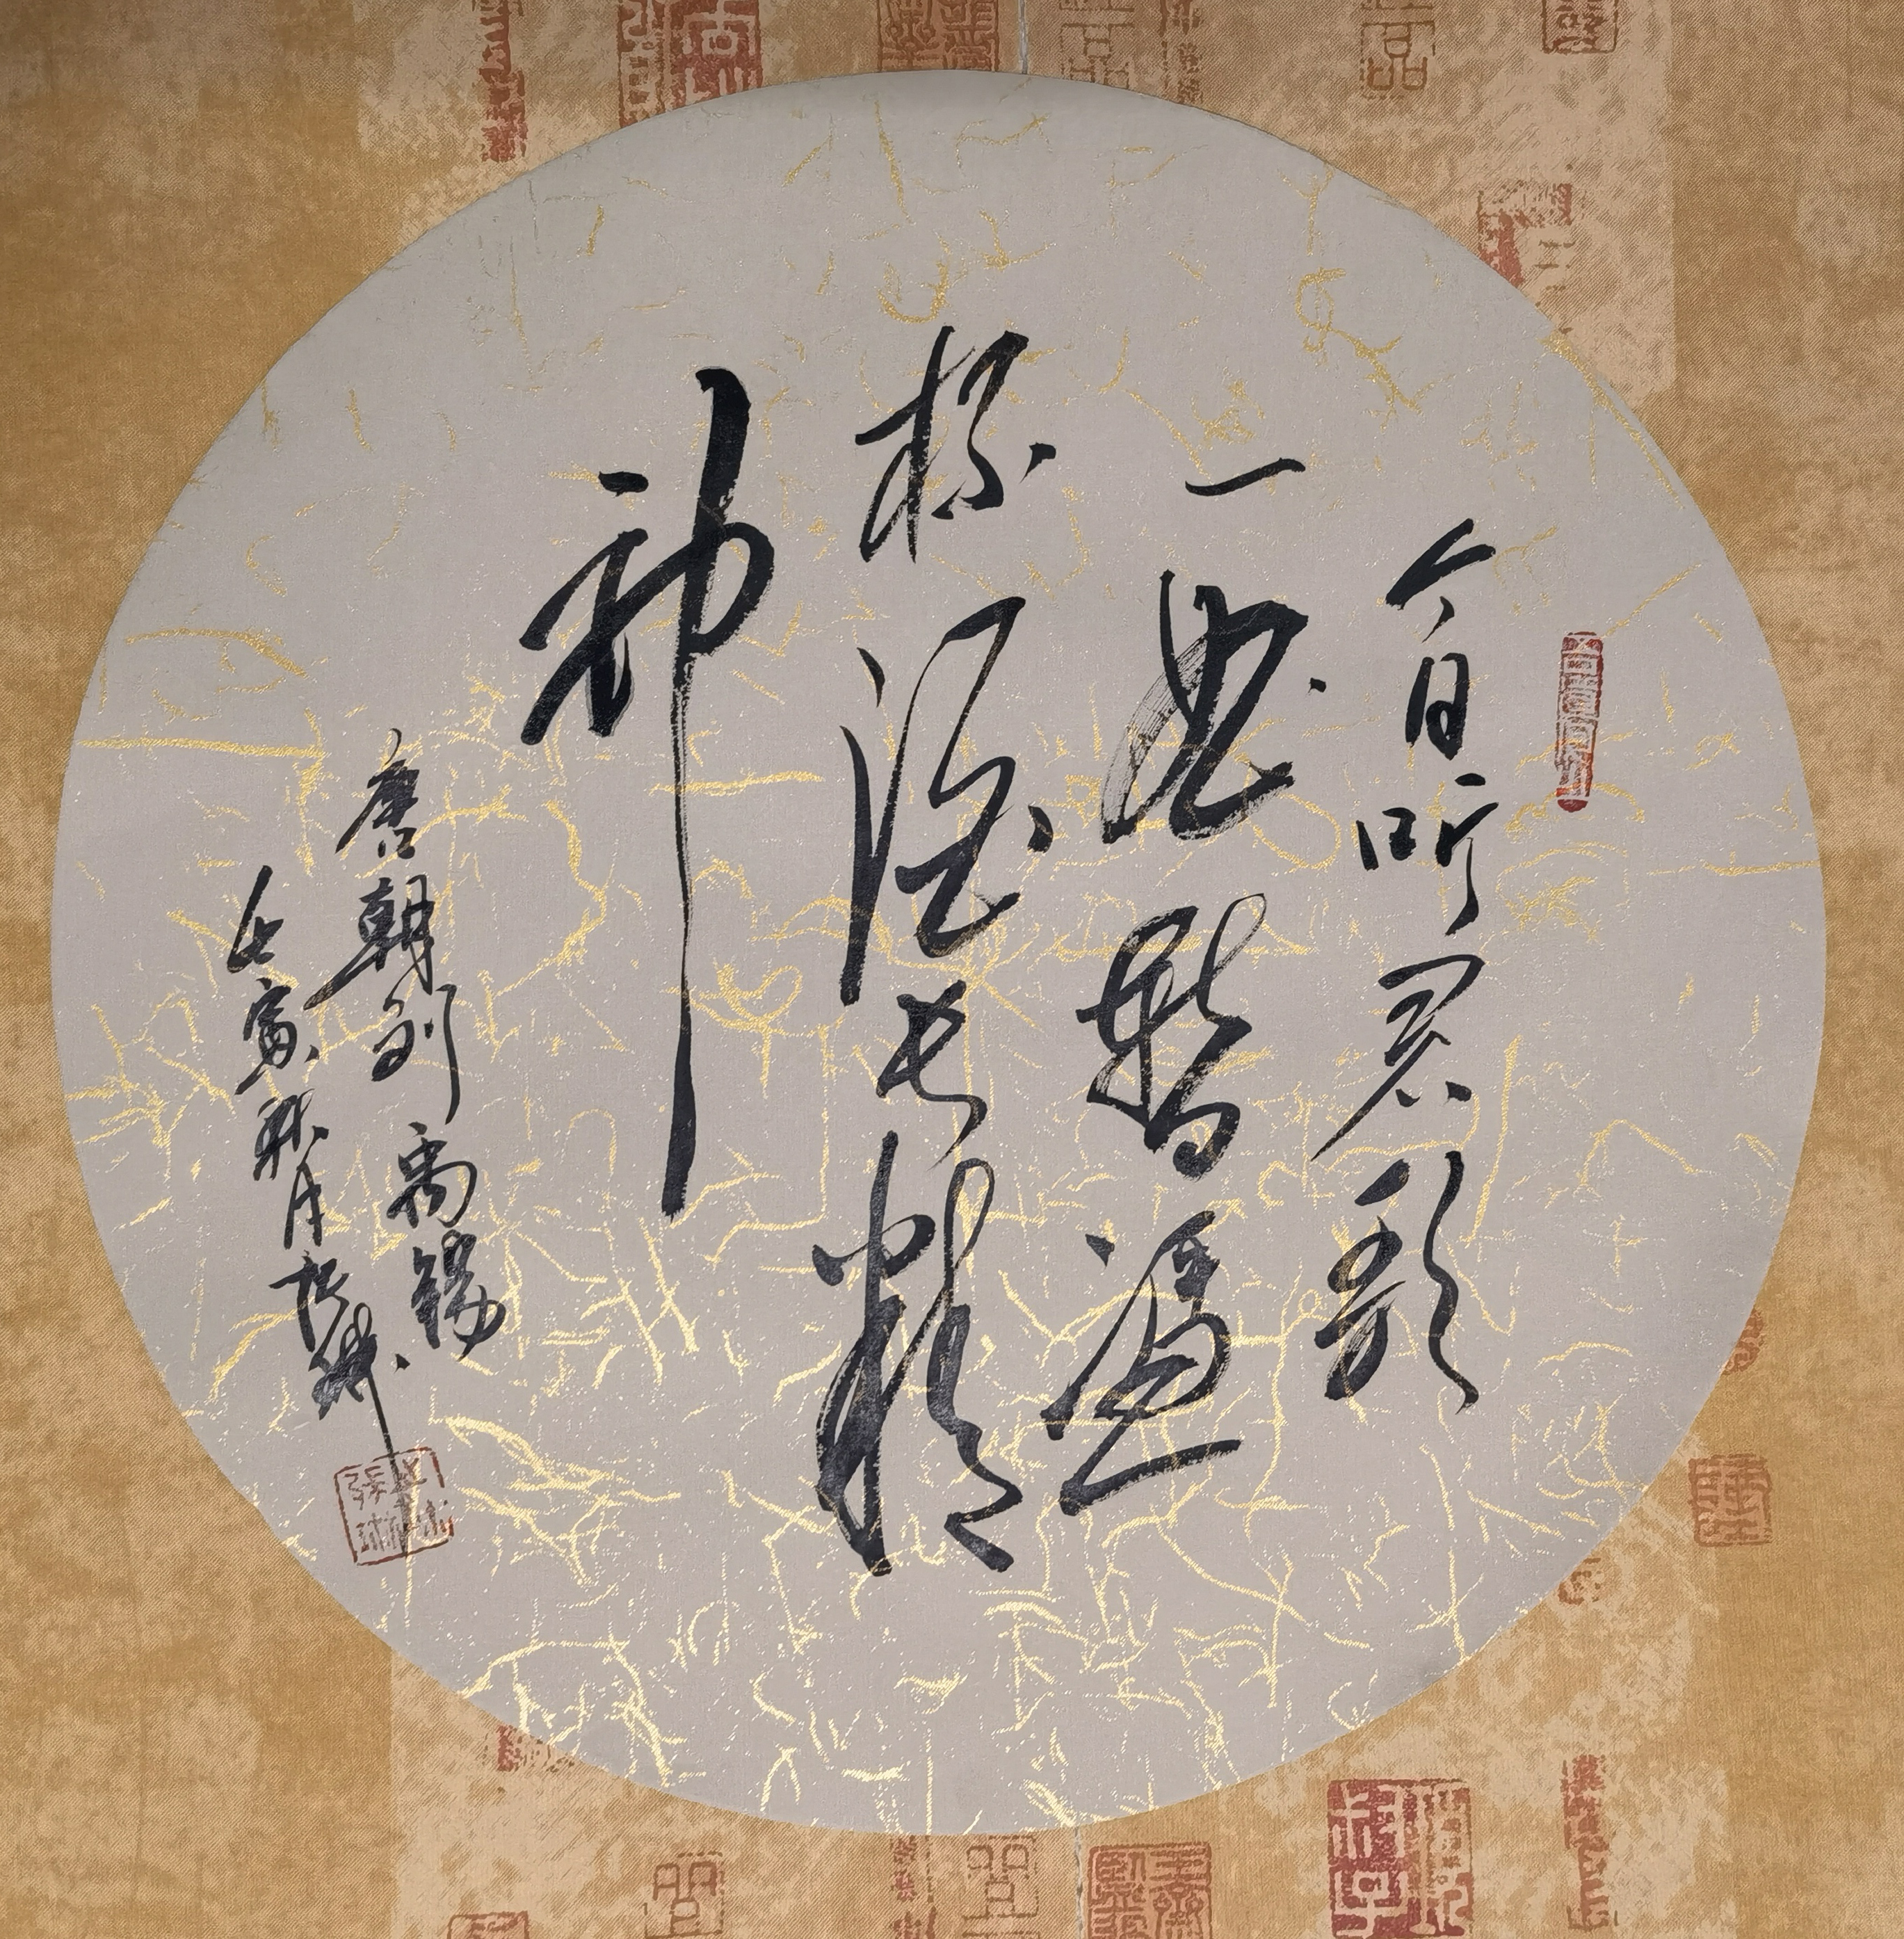 今日听君歌
一曲暫憑
杯酒长精
神
唐朝刘禹锡
壬寅秋月张琳